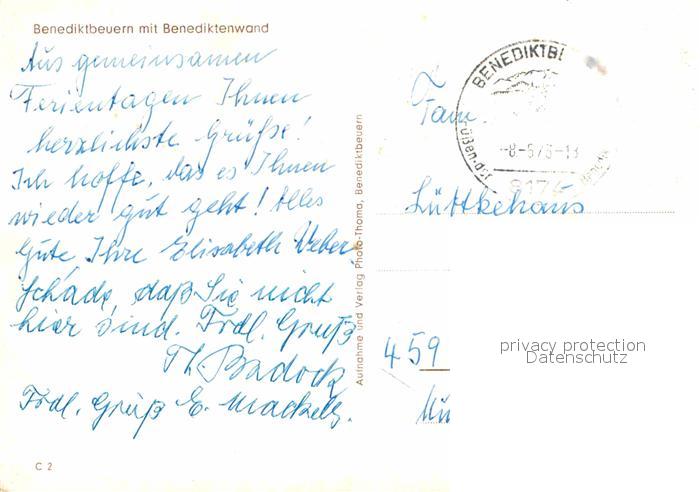 Benediktbeuern mit Benediktenwand
Aus gemeinsamen
Ferientagen Ihnen
herzlichste Grüße!
Ich hoffe, das es Ihnen
wieder gut geht! Alles
Gute Ihre Elisabeth Weber
Schade, daß Sie nicht
hier sind. Frdl. Gruß
Th. Badock
Frdl. Gruß E.
C 2
Aufnahme und Verlag Photo-Thoma, Benediktbeuern
BENEDIKTB
8174
Fam.
Lüttkehaus
459
privacy protection
Datenschutz
Mü